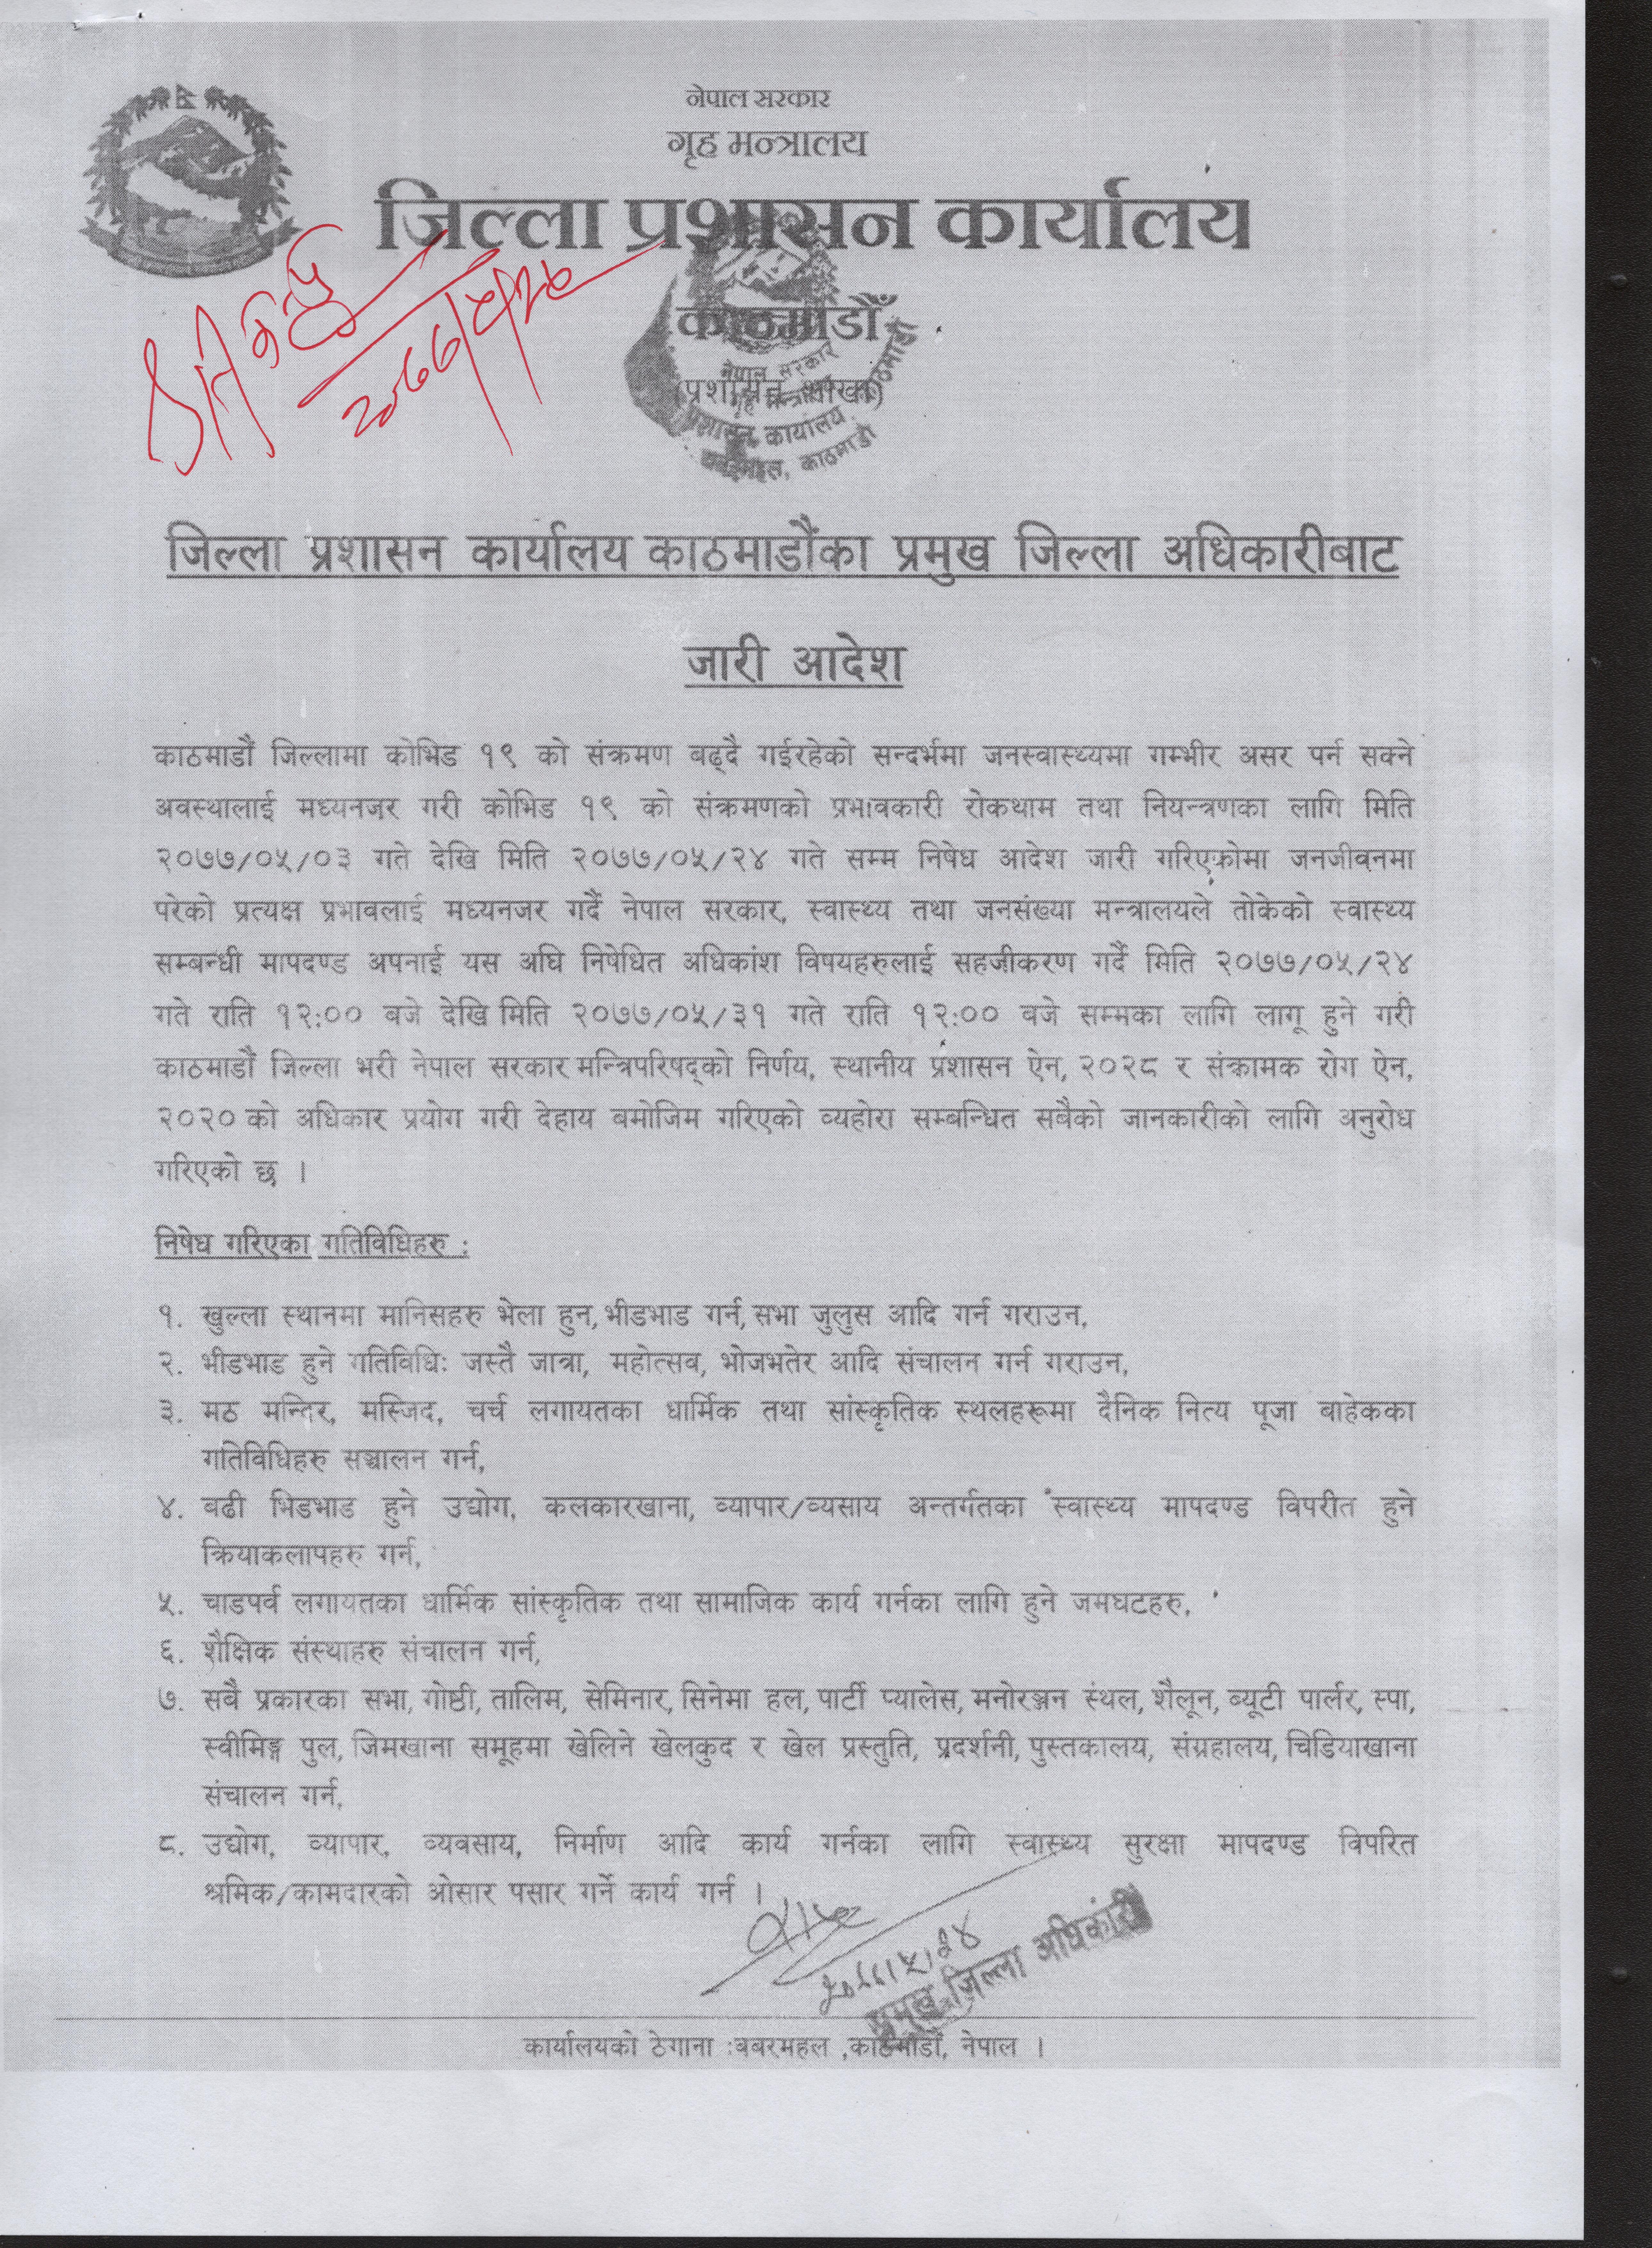 नेपाल सरकार
गृह मन्त्रालय
जिल्ला प्रशासन कार्यालय
काठमाडौँ
(प्रशासन शाखा)
नेपाल सरकार
प्रशासन कार्यालय, काठमाडौं
बबरमहल, काठमाडौं
२०७७/५/२५
जिल्ला प्रशासन कार्यालय काठमाडौंका प्रमुख जिल्ला अधिकारीबाट
जारी आदेश
काठमाडौं जिल्लामा कोभिड १९ को संक्रमण बढ्दै गईरहेको सन्दर्भमा जनस्वास्थ्यमा गम्भीर असर पर्न सक्ने
अवस्थालाई मध्यनजर गरी कोभिड १९ को संक्रमणको प्रभावकारी रोकथाम तथा नियन्त्रणका लागि मिति
२०७७/०५/०३ गते देखि मिति २०७७/०५/२४ गते सम्म निषेध आदेश जारी गरिएकोमा जनजीवनमा
परेको प्रत्यक्ष प्रभावलाई मध्यनजर गर्दै नेपाल सरकार, स्वास्थ्य तथा जनसंख्या मन्त्रालयले तोकेको स्वास्थ्य
सम्बन्धी मापदण्ड अपनाई यस अघि निषेधित अधिकांश विषयहरुलाई सहजीकरण गर्दै मिति २०७७/०५/२४
गते राति १२:०० बजे देखि मिति २०७७/०५/३१ गते राति १२:०० बजे सम्मका लागि लागू हुने गरी
काठमाडौं जिल्ला भरी नेपाल सरकार मन्त्रिपरिषद्को निर्णय, स्थानीय प्रशासन ऐन, २०२८ र संक्रामक रोग ऐन,
२०२० को अधिकार प्रयोग गरी देहाय बमोजिम गरिएको व्यहोरा सम्बन्धित सबैको जानकारीको लागि अनुरोध
गरिएको छ ।
निषेध गरिएका गतिविधिहरु :
१. खुल्ला स्थानमा मानिसहरु भेला हुन, भीडभाड गर्न, सभा जुलुस आदि गर्न गराउन,
२. भीडभाड हुने गतिविधिः जस्तै जात्रा, महोत्सव, भोजभतेर आदि संचालन गर्न गराउन,
३. मठ मन्दिर, मस्जिद, चर्च लगायतका धार्मिक तथा सांस्कृतिक स्थलहरूमा दैनिक नित्य पूजा बाहेकका
गतिविधिहरु सञ्चालन गर्न,
४. बढी भिडभाड हुने उद्योग, कलकारखाना, व्यापार/व्यसाय अन्तर्गतका स्वास्थ्य मापदण्ड विपरीत हुने
क्रियाकलापहरु गर्न,
५. चाडपर्व लगायतका धार्मिक सांस्कृतिक तथा सामाजिक कार्य गर्नका लागि हुने जमघटहरु,
६. शैक्षिक संस्थाहरु संचालन गर्न,
७. सबै प्रकारका सभा, गोष्ठी, तालिम, सेमिनार, सिनेमा हल, पार्टी प्यालेस, मनोरञ्जन स्थल, शैलून, ब्यूटी पार्लर, स्पा,
स्वीमिङ्ग पुल, जिमखाना समूहमा खेलिने खेलकुद र खेल प्रस्तुति, प्रदर्शनी, पुस्तकालय, संग्रहालय, चिडियाखाना
संचालन गर्न,
८. उद्योग, व्यापार, व्यवसाय, निर्माण आदि कार्य गर्नका लागि स्वास्थ्य सुरक्षा मापदण्ड विपरित
श्रमिक/कामदारको ओसार पसार गर्ने कार्य गर्न ।
२०७७।५।२४
प्रमुख जिल्ला अधिकारी
कार्यालयको ठेगाना :बबरमहल ,काठमाडौं, नेपाल ।